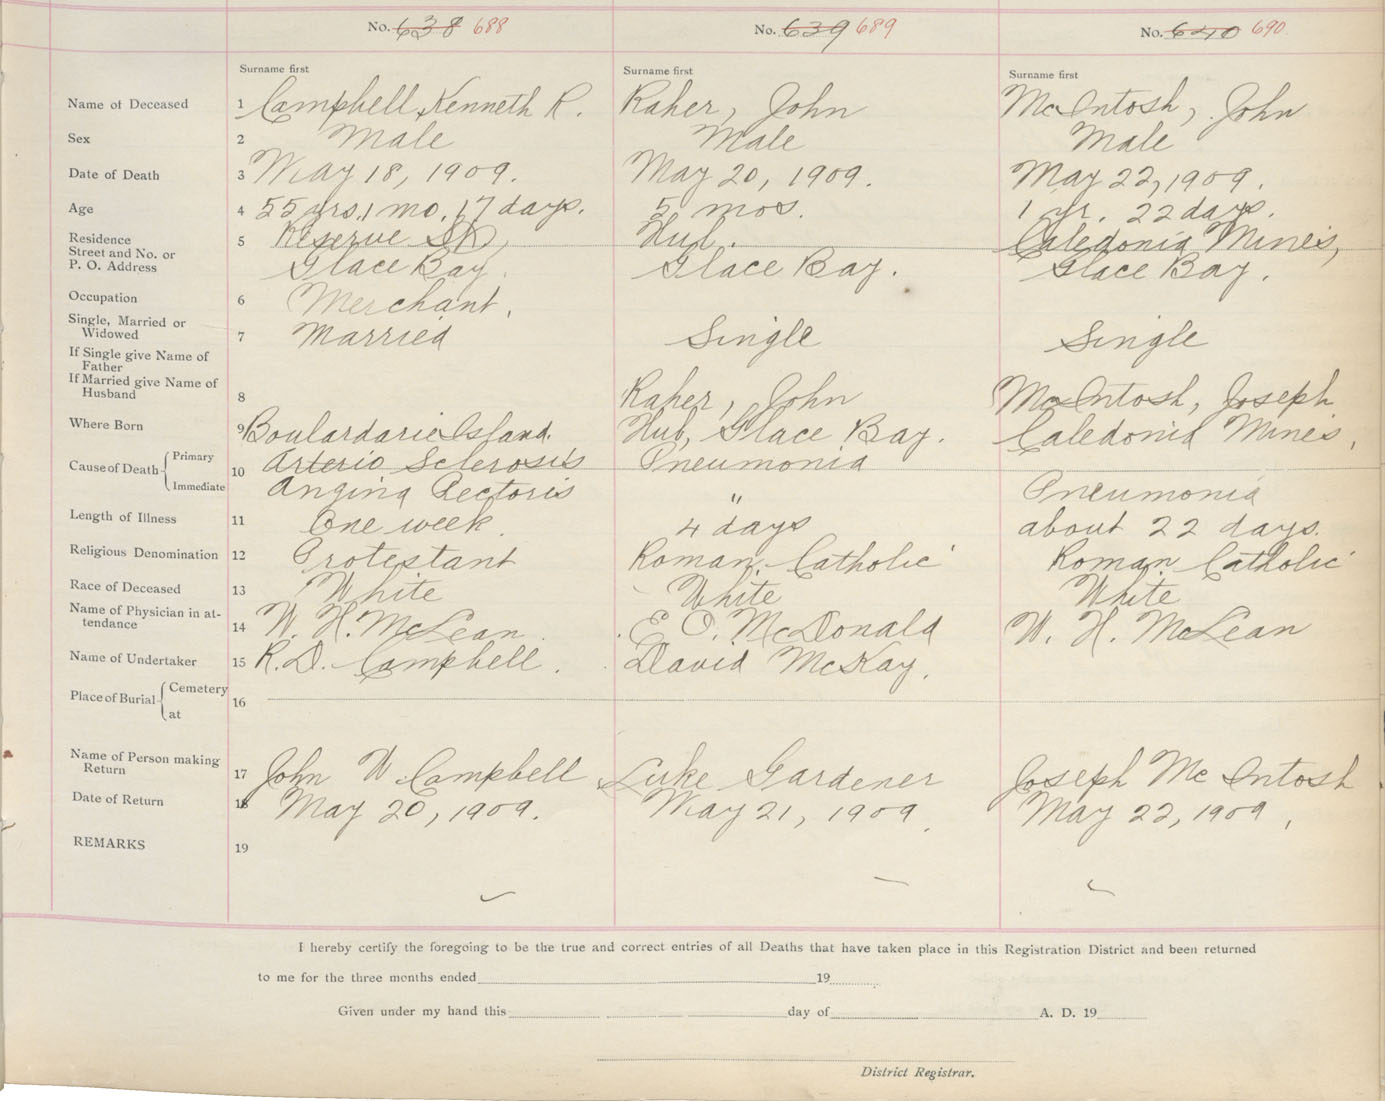 No. 638 688 No. 639 689 No. 640 690
Surname first Surname first Surname first
Name of Deceased 1 Campbell, Kenneth R. Raher, John McIntosh, John
Sex 2 Male Male Male
Date of Death 3 May 18, 1909. May 20, 1909. May 22, 1909.
Age 4 55 yrs. 1 mo. 17 days. 5 mos. 1 yr. 22 days.
Residence 5 Reserve Hub. Caledonia Mines,
Street and No. or
P. O. Address Glace Bay. Glace Bay. Glace Bay.
Occupation 6 Merchant.
Single, Married or
Widowed 7 Married Single Single
If Single give Name of
Father
If Married give Name of
Husband 8 Raher, John McIntosh, Joseph
Where Born 9 Boulardarie Island. Hub, Glace Bay. Caledonia Mines,
Cause of Death Primary 10 Arterio Sclerosis Pneumonia
Immediate Angina Pectoris " Pneumonia
Length of Illness 11 One week 4 days about 22 days.
Religious Denomination 12 Protestant Roman Catholic Roman Catholic
Race of Deceased 13 White White White
Name of Physician in at-
tendance 14 W. H. McLean E. O. McDonald W. H. McLean
Name of Undertaker 15 R. D. Campbell. David McKay.
Place of Burial Cemetery 16
at
Name of Person making
Return 17 John W Campbell Luke Gardener Joseph McIntosh
Date of Return 18 May 20, 1909. May 21, 1909. May 22, 1909,
REMARKS 19
I hereby certify the foregoing to be the true and correct entries of all Deaths that have taken place in this Registration District and been returned
to me for the three months ended 19
Given under my hand this day of A. D. 19
District Registrar.